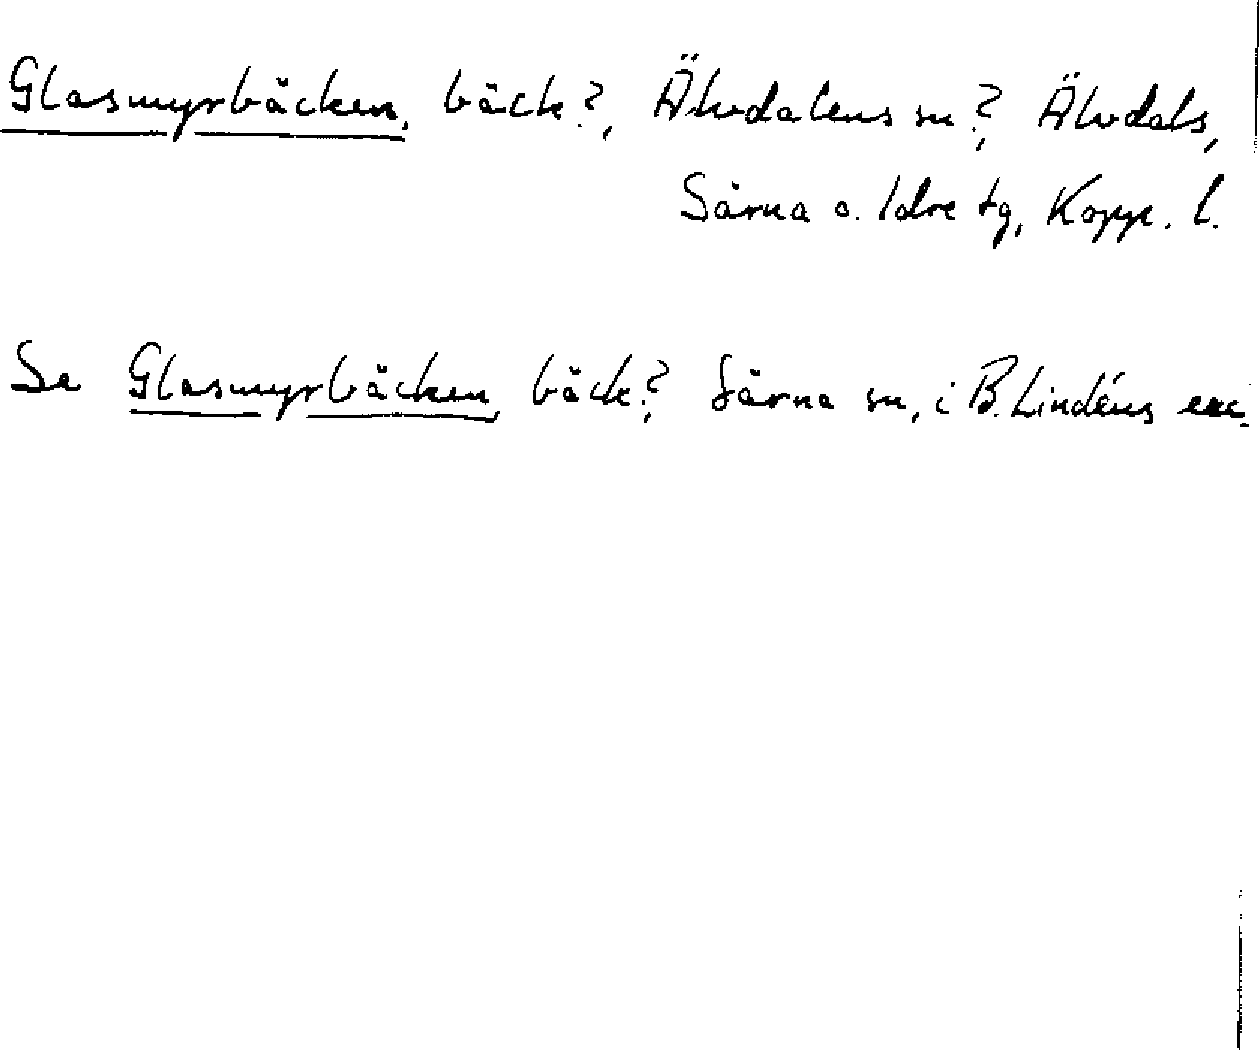 Glasmyrbäcken, bäck?, Älvdalens sn?, Älvdals,
Särna o. Idre tg, Kopp. l.
Se Glasmyrbäcken, bäck?, Särna sn, i B. Lindéns exc.